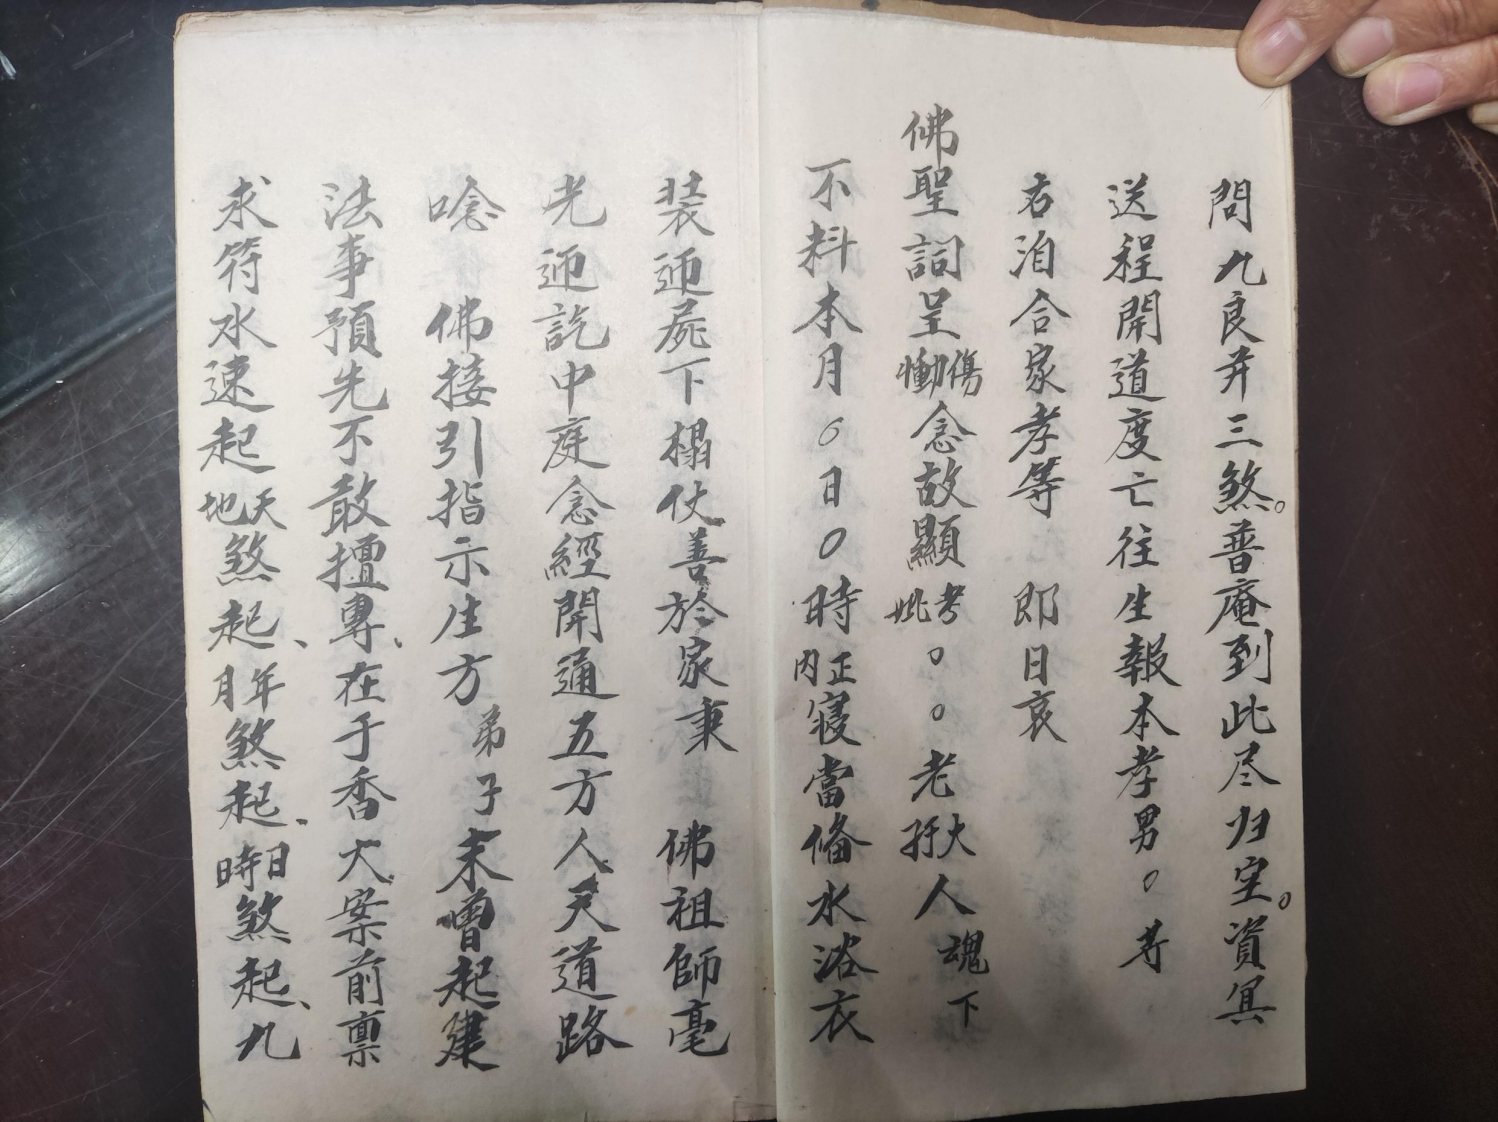 問九良并三煞。普庵到此尽归空。資冥
送程開道度亡往生報本孝男。等
右洎合家孝等 即日哀
佛聖詞呈傷慟念故顯考妣。。老大孺人魂下
不料本月〇日〇時正内寝當俻水浴衣
装迊屍下榻仗善於家秉 佛祖師毫
光迊訖中庭念經開通五方人天道路
唸 佛接引指示生方 弟子末曾起建
法事預先不敢擅專、在于香火案前禀
求符水速起天地煞起、年月煞起、日時煞起、九